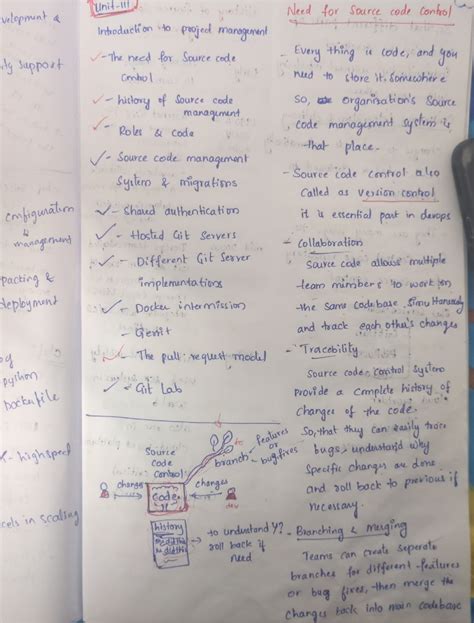 velopment &
support
configuration
&
management
packing &
deployment
python
Dockerfile
highspeed
in scaling
Unit-III
Introduction to project management
- The need for Source code
control
- history of Source code
management
- Roles & code
- Source code management
System & migrations
- Shared authentication
- Hosted Git Servers
- Different Git Server
implementations
- Docker intermission
- Gerrit
- The pull request model
- Git Lab
Source
Code
Control
branch
features
or
bugfixes
changes
Code
changes
dev
history
to understand Y?
roll back if
need
Need for Source code Control
- Every thing is code, and you
need to store it somewhere
so, organisation's Source
code management system is
that place.
- Source code control also
Called as version control
it is essential part in devops
- Collaboration
Source code allows multiple
team members to work on
the same codebase simultaneously
and track each other's changes
- Tracebility
Source code control system
Provide a complete history of
changes of the code.
So, that they can easily trace
bugs, understand why
specific changes are done
and roll back to previous if
necessary.
- Branching & Merging
Teams can create seperate
branches for different features
or bug fixes, then merge the
changes back into main codebase